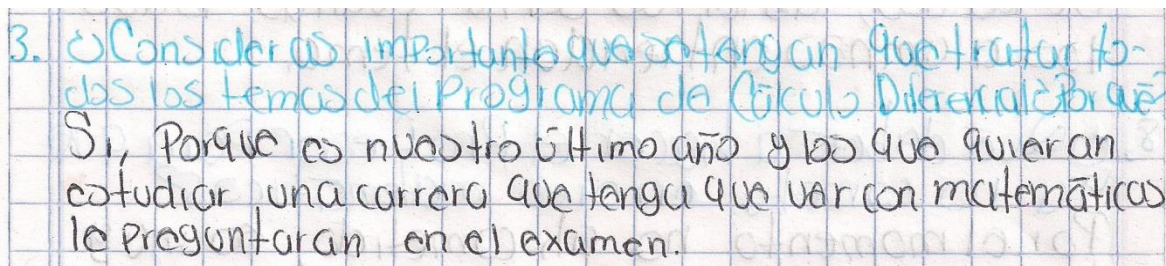 3. ¿Consideras importante que se tengan que tratar to-
dos los temas del Programa de Cálculo Diferencial¿Por qué?
Si, Porque es nuestro último año y los que quieran
estudiar una carrera que tenga que ver con matemáticas
le preguntaran en el examen.